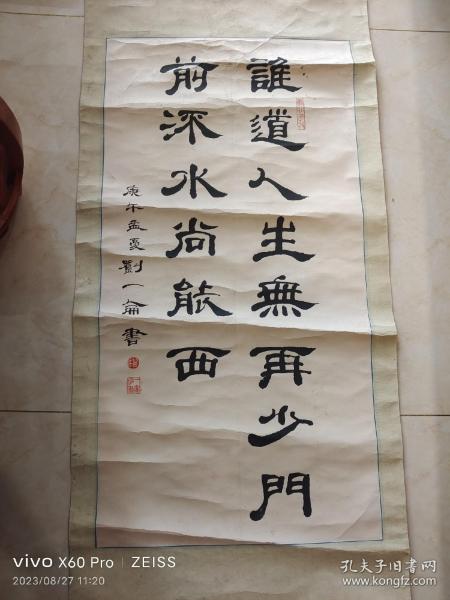 誰道人生無再少門
前流水尚能西
庚午孟夏劉一侖書
vivo X60 Pro | ZEISS
2023/08/27 11:20
孔夫子旧书网
www.kongfz.com